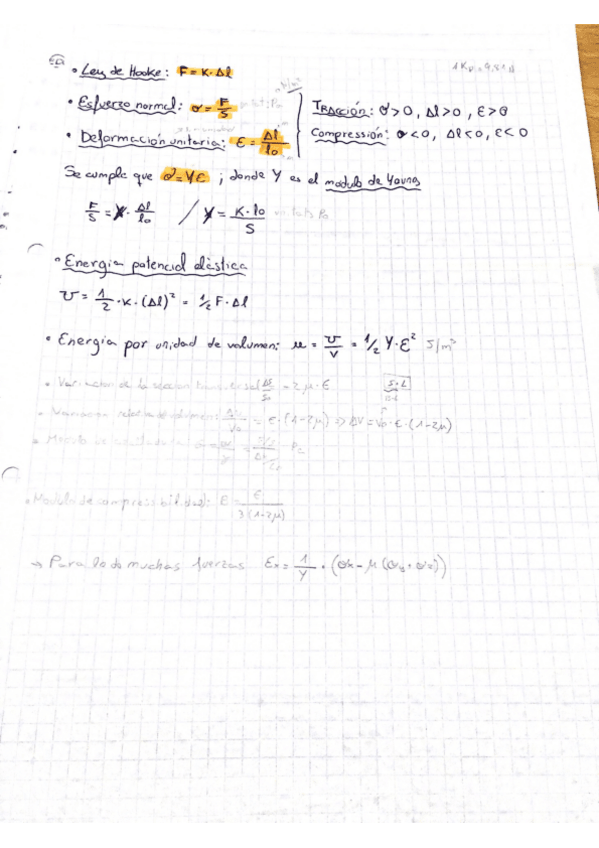 1 Kp = 9,81 N
• Ley de Hooke: F = K · Δl
N/m²
• Esfuerzo normal: σ = F/S Pa
Tracción: σ>0, Δl>0, ε>0
• Deformación unitaria: ε = Δl/l₀
Compressión: σ<0, Δl<0, ε<0
Se cumple que σ=Yε ; donde Y es el modulo de Young
F/S = Y · Δl/l₀ / Y = K · l₀/S Pa
• Energia potencial elástica
U = 1/2 · K · (Δl)² = 1/2 F · Δl
• Energia por unidad de volumen: u = U/V = 1/2 Y · ε² J/m³
• Variación de la sección transversal ΔS/S₀ = 2μ · ε
• Variación relativa de volumen: ΔV/V₀ = ε · (1-2μ) => ΔV = V₀ · ε · (1-2μ)
• Modulo de compressibilidad: = /3(1-2μ)
→ Para lado muchas fuerzas εx = 1/Y · (σx - μ(σy + σz))